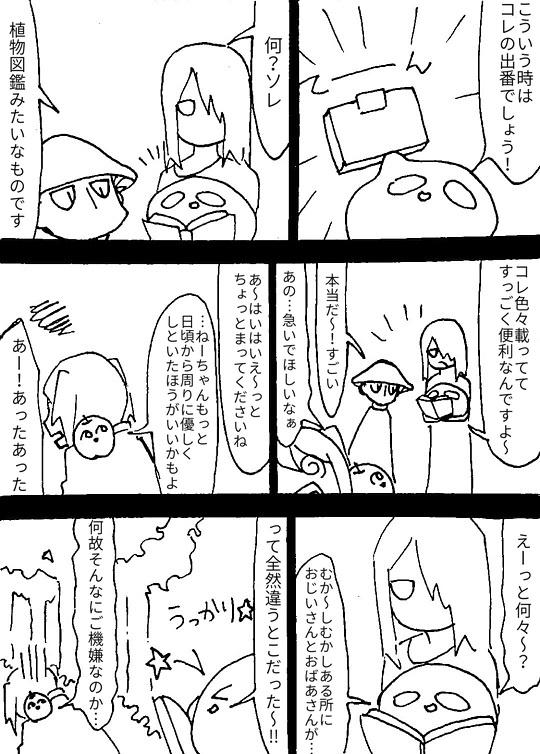 こういう時は
コレの出番でしょう！
何？ソレ
植物図鑑みたいなものです
コレ色々載ってて
すっごく便利なんですよ〜
本当だ〜！すごい
あの…急いでほしいなぁ
あ〜はいはいえ〜っと
ちょっとまってくださいね
…ねーちゃんもっと
日頃から周りに優しく
しといたほうがいいかもよ
あー！あったあった
えーっと何々〜？
むか〜しむかしある所に
おじいさんとおばあさんが…
って全然違うとこだった〜!!
うっかり☆
何故そんなにご機嫌なのか…